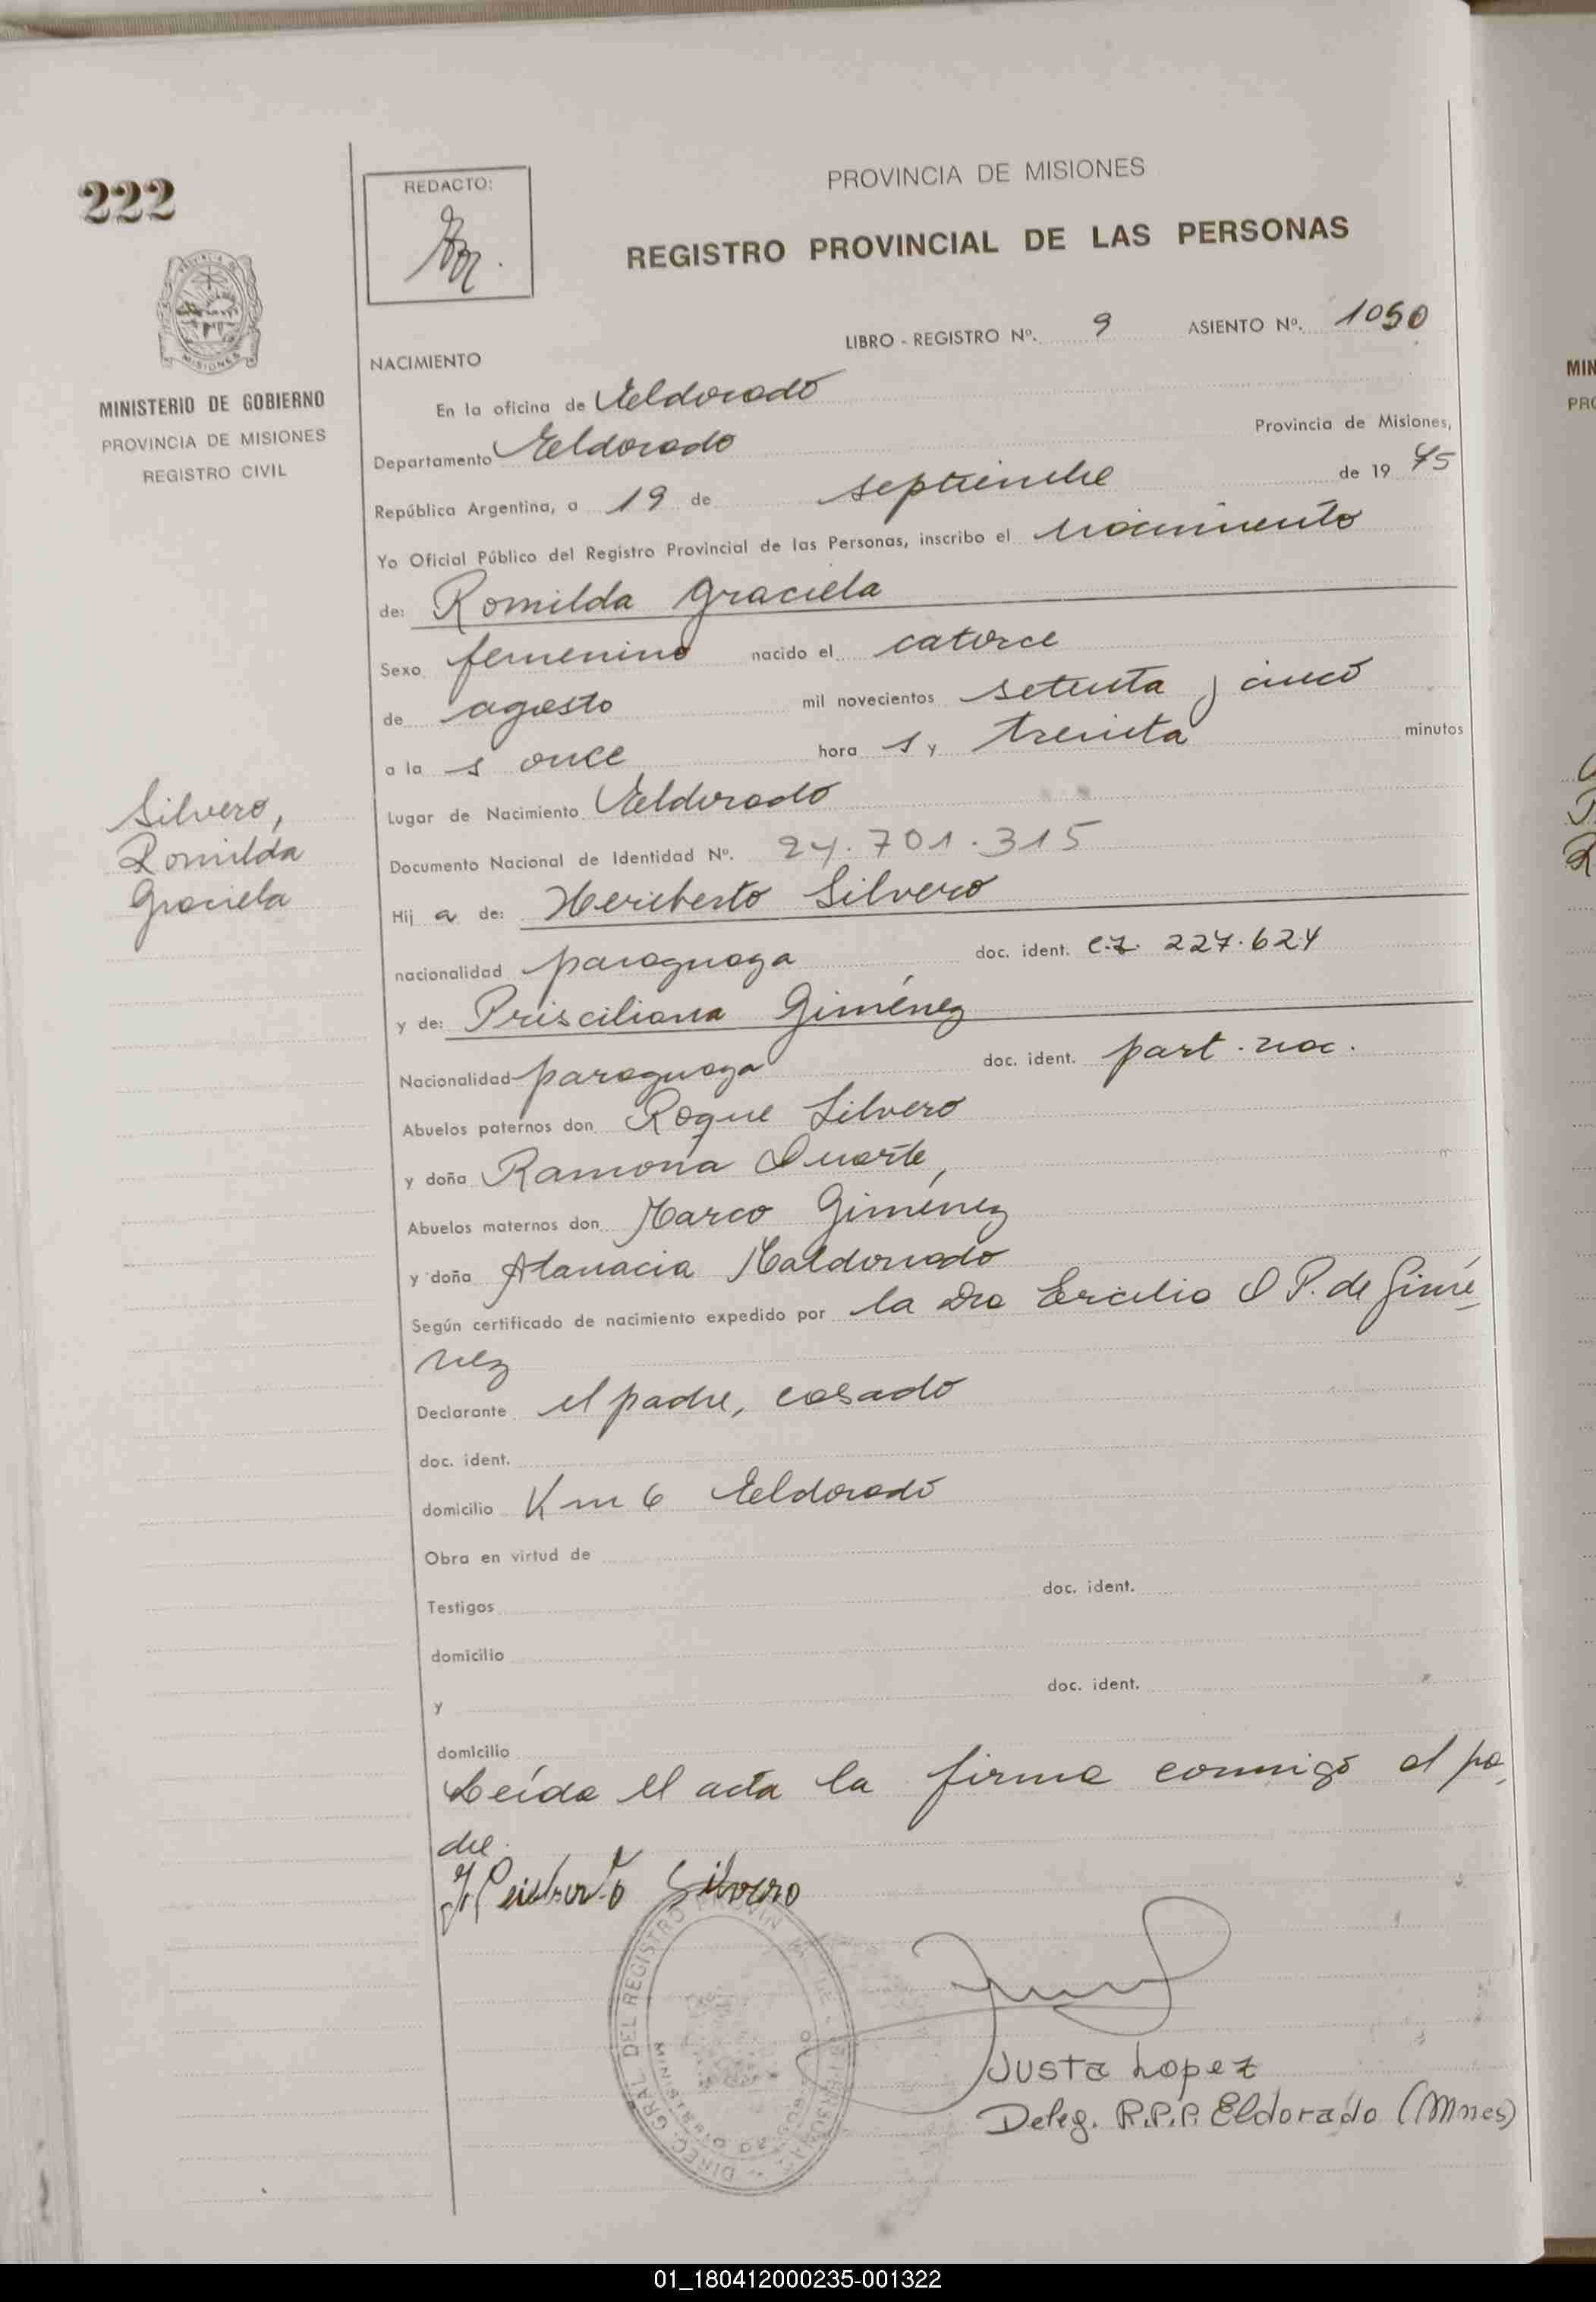 222
REDACTO:
PROVINCIA DE MISIONES
REGISTRO PROVINCIAL DE LAS PERSONAS
MISIONES
MINISTERIO DE GOBIERNO
PROVINCIA DE MISIONES
REGISTRO CIVIL
LIBRO - REGISTRO Nº. 9 ASIENTO Nº. 1050
NACIMIENTO
En la oficina de Eldorado
Departamento Eldorado Provincia de Misiones,
República Argentina, a 19 de septiembre de 19 75
Yo Oficial Público del Registro Provincial de las Personas, inscribo el nacimiento
de: Romilda Graciela
Sexo femenino nacido el catorce
de agosto mil novecientos setenta y cinco
a la s once hora s y treinta minutos
Lugar de Nacimiento Eldorado
Documento Nacional de Identidad Nº. 24.701.315
Silvero,
Romilda
Graciela
Hij a de: Heriberto Silvero
nacionalidad paraguaya doc. ident. C.I. 227.624
y de: Prisciliana Giménez
Nacionalidad paraguaya doc. ident. part. nac.
Abuelos paternos don Roque Silvero
y doña Ramona Duarte
Abuelos maternos don Marco Giménez
y doña Atanacia Maldonado
Según certificado de nacimiento expedido por la Dra Ercilia D P. de Gimé
nez
Declarante el padre, casado
doc. ident.
domicilio Km 6 Eldorado
Obra en virtud de
Testigos doc. ident.
domicilio
y doc. ident.
domicilio
Leída el acta la firma conmigo el pa
dre.
Heriberto Silvero
DIREC. GRAL. DEL REGISTRO PROVIN DE
Justa Lopez
Deleg. R.P.P. Eldorado (Mnes)
MIN
PRO
01_180412000235-001322